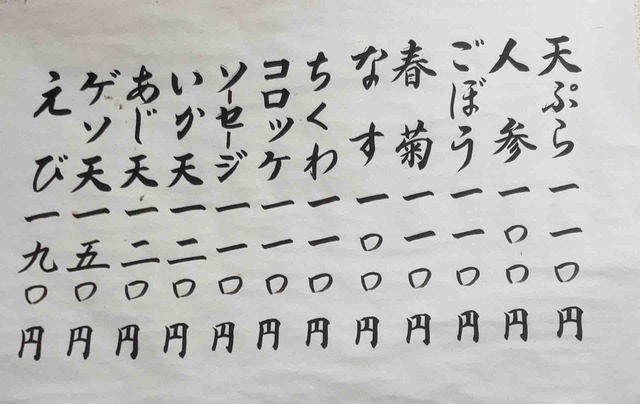 天ぷら一一〇円
人参一〇〇円
ごぼう一一〇円
春菊一一〇円
なす一〇〇円
ちくわ一一〇円
コロッケ一一〇円
ソーセージ一一〇円
いか天一二〇円
あじ天一二〇円
ゲソ天一五〇円
えび一九〇円